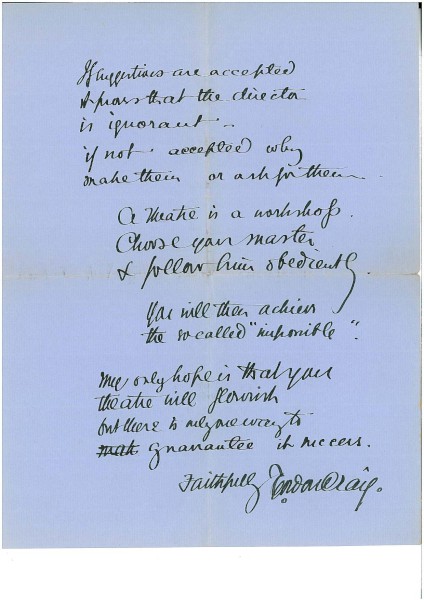 If suggestions are accepted
it proves that the director
is ignorant –
if not accepted why
make them or ask for them
A theatre is a workshop.
Choose your master
& follow him obediently.
You will then achieve
the so called "impossible".
My only hope is that your
theatre will flourish
but there is only one way to
guarantee its success.
Faithfully Gordon Craig.